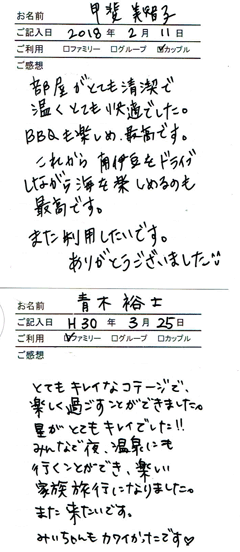 お名前 甲斐 美智子
ご記入日 2018年 2月 11日
ご利用 □ファミリー □グループ ☑カップル
ご感想
部屋がとても清潔で
温くとても快適でした。
BBQも楽しめ、最高です。
これから 南伊豆をドライブ
しながら海を楽しめるのも
最高です。
また利用したいです。
ありがとうございました
お名前 青木 裕士
ご記入日 H30年 3月 25日
ご利用 ☑ファミリー □グループ □カップル
ご感想
とてもキレイなコテージで、
楽しく過ごすことができました。
星がとてもキレイでした!!
みんなで夜、温泉にも
行くことができ、楽しい
家族旅行になりました。
また来たいです。
みいちゃんもカワイかったです♡